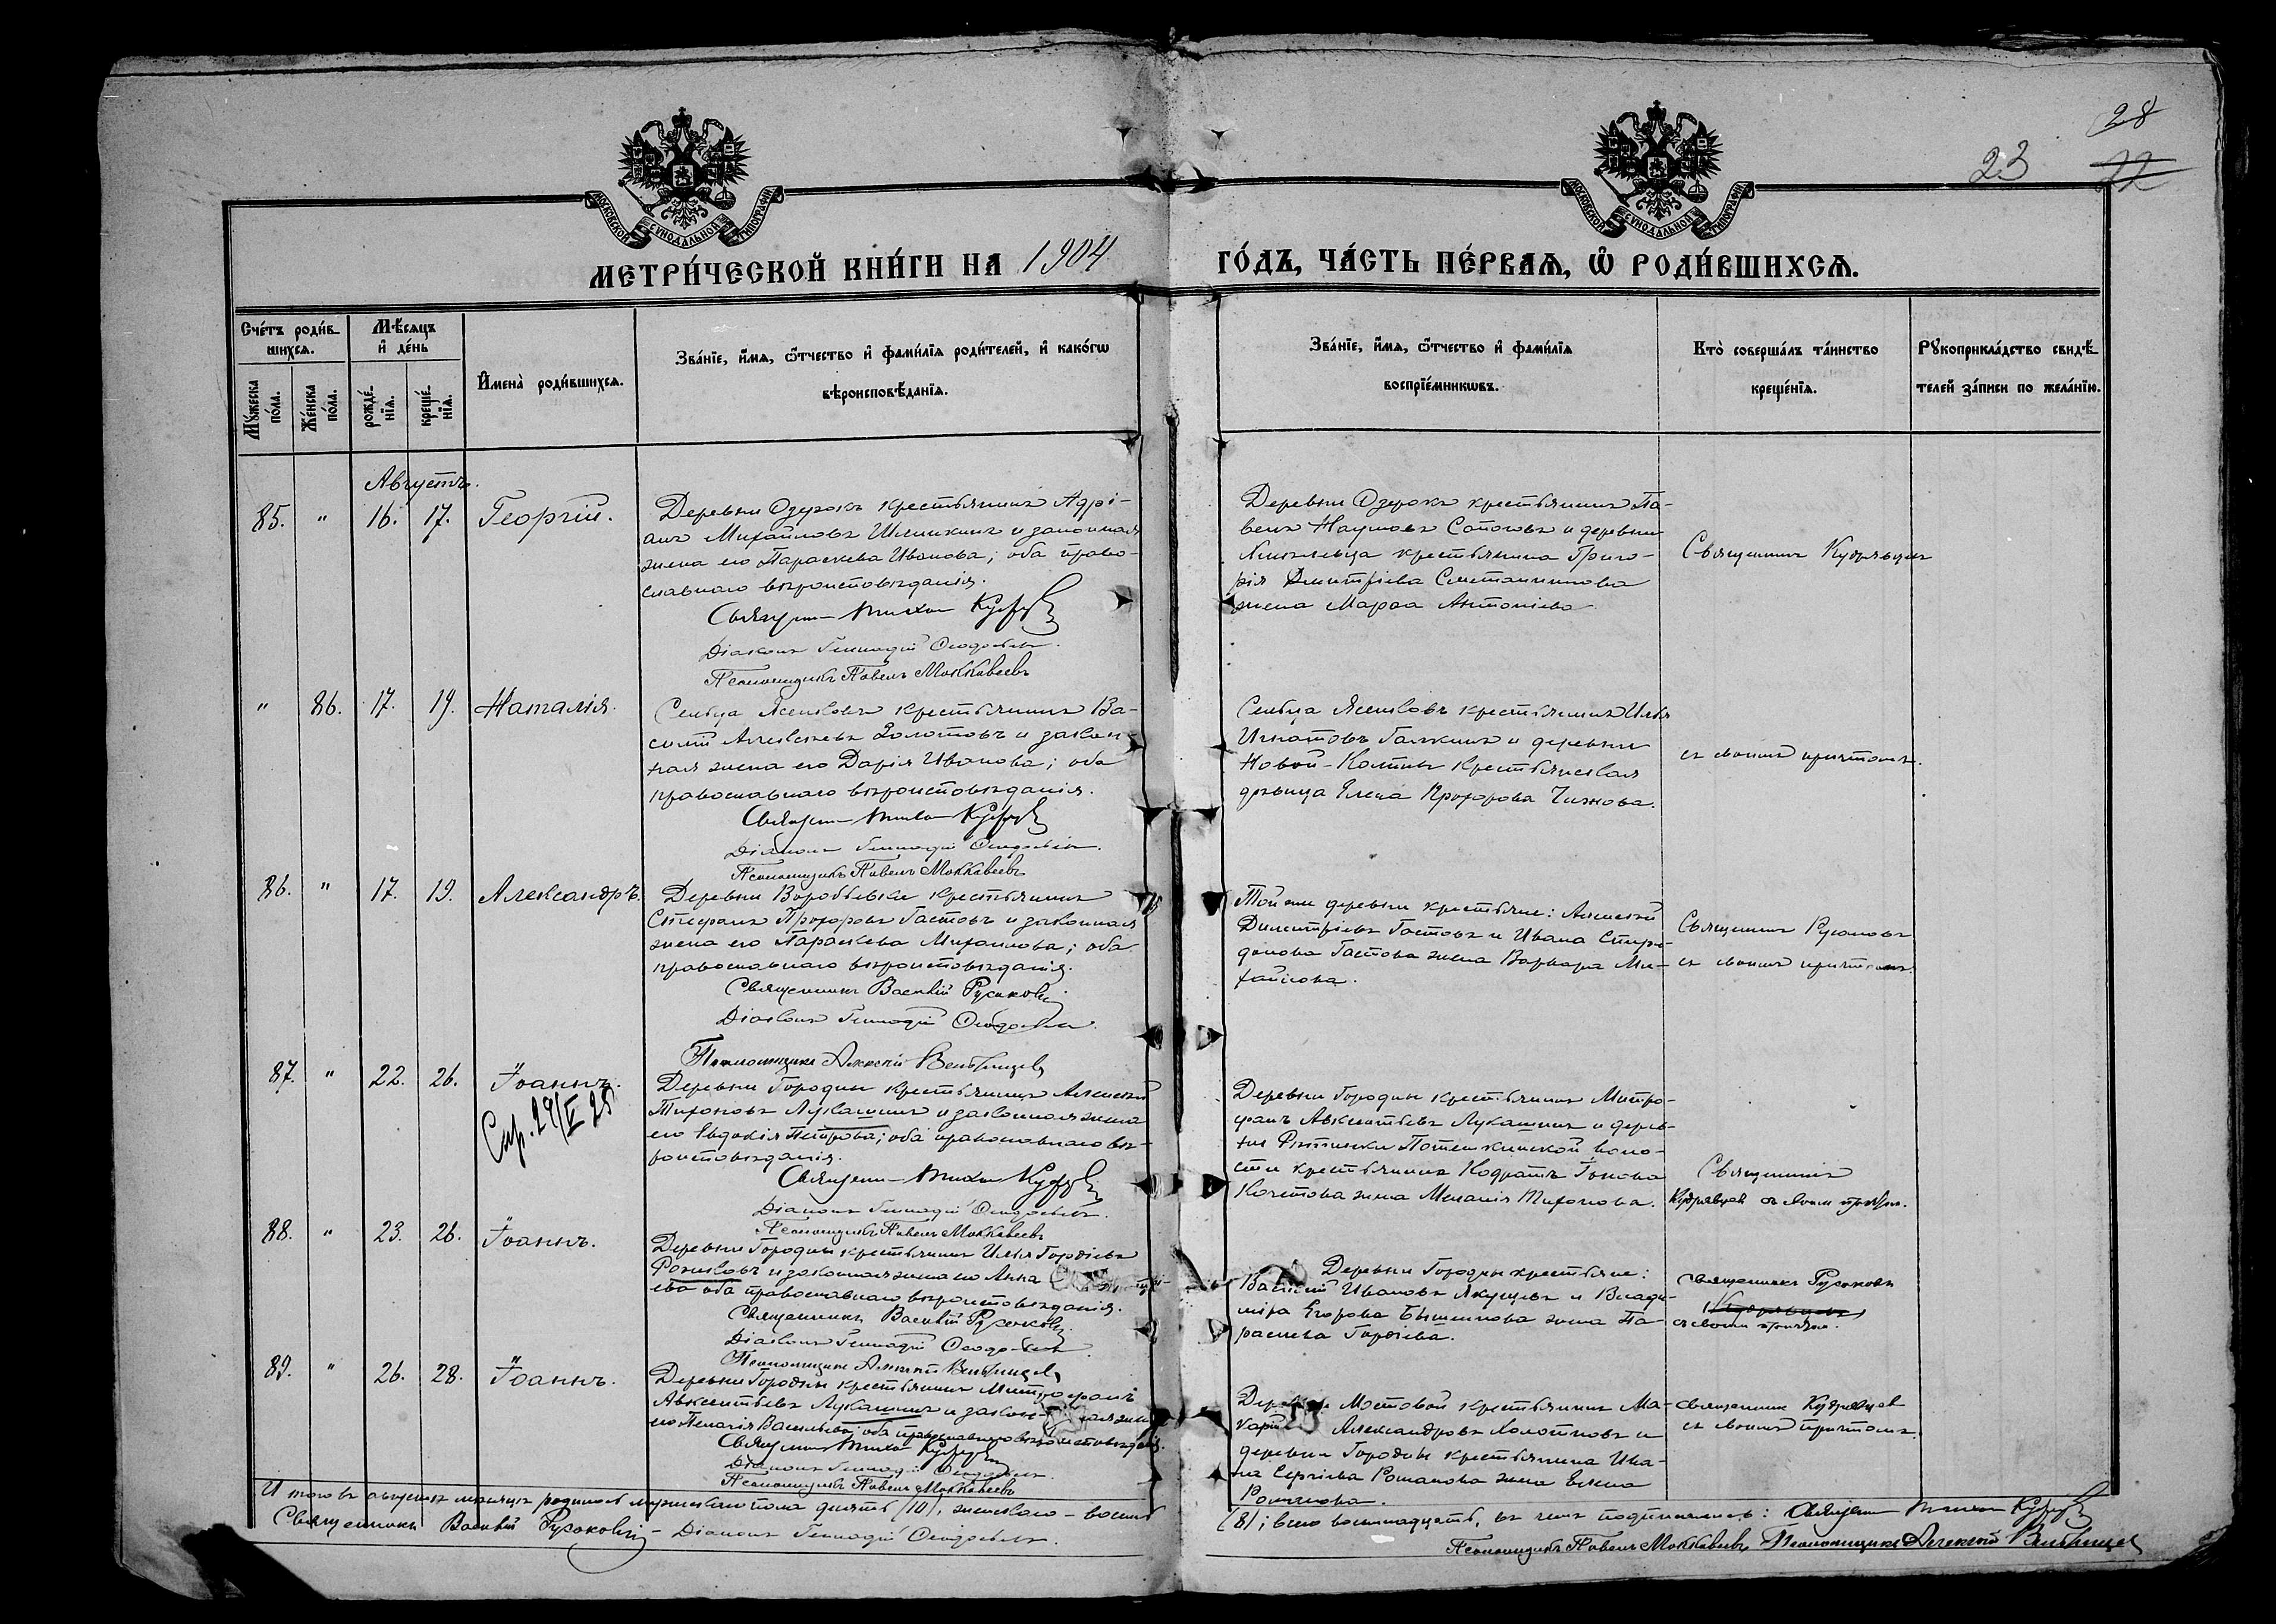 28
23 22
МОСКОВСКОЙ СѴНОДАЛЬНОЙ ТИПОГРАФІИ
МОСКОВСКОЙ СѴНОДАЛЬНОЙ ТИПОГРАФІИ
МЕТРИ́ЧЕСКОЙ КНИ́ГИ НА 1904 ГО́ДЪ, ЧА́СТЬ ПЕ́РВАѦ, Ѡ҆ РОДИ́ВШИХСѦ.
Сче́тъ роди́в-
шихсѧ.
Мѣ́сѧцъ
и҆ де́нь
Мꙋ́жеска
по́ла.
Же́нска
по́ла.
рожде́-
нїѧ.
креще́-
нїѧ.
И҆мена̀ роди́вшихсѧ.
Зва́нїе, и҆́мѧ, ѻ҆́тчество и҆ фами́лїѧ роди́телей, и҆ како́гѡ
вѣроисповѣ́данїѧ.
Зва́нїе, и҆́мѧ, ѻ҆́тчество и҆ фами́лїѧ
воспрїе́мникѡвъ.
Кто̀ соверша́лъ та́инство
креще́нїѧ.
Рꙋкоприкла́дство свидѣ́-
телей за́писи по жела́нїю.
Августъ.
85. " 16. 17. Георгій.
Деревни Озерокъ крестьянинъ Адрі-
анъ Михайловъ Шишкинъ и законная
жена его Параскева Иванова; оба право-
славнаго вѣроисповѣданія.
Священ Тихон Кудр
Діаконъ Геннадій Ѳеодоровъ.
Псаломщикъ Павелъ Маккавеевъ
Деревни Озерокъ крестьянинъ Па-
велъ Наумовъ Сапоговъ и деревни
крестьянина Григо-
рія Димитріева Сметанникова
жена Марѳа Антоніева.
Священникъ Кудрявцевъ
" 86. 17. 19. Наталія.
Сельца Ясенковъ крестьянинъ Ва-
силій Алексѣевъ Золотовъ и закон-
ная жена его Дарія Иванова; оба
православнаго вѣроисповѣданія.
Священ Тихон Кудр
Діаконъ Геннадій Ѳеодоровъ.
Псаломщикъ Павелъ Маккавеевъ
Сельца Ясенковъ крестьянинъ Илья
Игнатовъ Галкинъ и деревни
Новой-Колпны крестьянская
дѣвица Елена Прохорова Чижова.
съ своимъ причтомъ.
86. " 17. 19. Александръ.
Деревни Воробьевки крестьянинъ
Стефанъ Прохоровъ Гастовъ и законная
жена его Параскева Михаилова; оба
православнаго вѣроисповѣданія.
Священникъ Василій Русаковъ
Діаконъ Геннадій Ѳеодоровъ.
Псаломщикъ Алексій
Той же деревни крестьяне: Алексій
Димитріевъ Гастовъ и Ивана Спири-
донова Гастова жена Варвара Ми-
хайлова.
Священникъ Русаковъ
съ своимъ причтомъ.
87. " 22. 26. Іоаннъ.
Деревни Городны крестьянинъ Алексій
Тихоновъ Лукашинъ и законная жена
его Евдокія Петрова; оба православнаго вѣ-
роисповѣданія.
Священ Тихон Кудр
Діаконъ Геннадій Ѳеодоровъ.
Псаломщикъ Павелъ Маккавеевъ
Деревни Городны крестьянинъ Митро-
фанъ Авксентьевъ Лукашинъ и дерев-
ни Потемкинской воло-
сти крестьянина
Кочетова жена Меланія Тихонова.
Священникъ
Кудрявцев съ своим причтом.
88. " 23. 26. Іоаннъ.
Деревни Городны крестьянинъ Илья Гордіевъ
и законная жена его Анна
ева оба православнаго вѣроисповѣданія.
Священникъ Василій Русаковъ
Діаконъ Геннадій Ѳеодоровъ.
Псаломщикъ Алексій
Деревни Городны крестьяне:
Василій Ивановъ Якушевъ и Влади-
міра Егорова жена Па-
раскева Гордіева.
Священникъ Русаковъ
съ своим причтом.
89. " 26. 28. Іоаннъ.
Деревни Городны крестьянинъ Митрофанъ
Авксентьевъ Лукашинъ и законная жена
его Пелагія Васильева; оба православнаго вѣроисповѣданія.
Священ Тихон Кудр
Діаконъ Геннадій Ѳеодоровъ.
Псаломщикъ Павелъ Маккавеевъ
Мостовой крестьянинъ Ма-
карій Александровъ и
деревни Городны крестьянина Ива-
на Сергіева Романова жена Елена
Священникъ Кудрявцев
съ своимъ причтомъ.
Итого въ августѣ мѣсяцѣ родилось мужескаго пола десять (10), женскаго - восемь
(8); всего восемнадцать, въ чемъ подписались: Священ Тихон Кудр
Священникъ Василій Русаковъ - Діаконъ Геннадій Ѳеодоровъ.
Псаломщикъ Павелъ Маккавеевъ Псаломщикъ Алексій